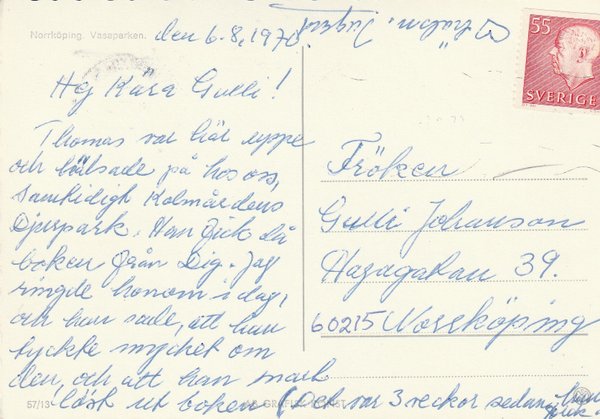 Norrköping. Vasaparken.
den 6.8, 1970.
Hej Kära Gulli!
Thomas var här uppe
och hälsade på hos oss,
samtidigt Kolmårdens
Djurpark. Han fick då
boken från Dig. Jag
ringde honom i dag,
och han sade, att han
tyckte mycket om
den, och att han
läst ut boken
och var 3 veckor sedan,
57/13
55
SVERIGE
Fröken
Gulli Johanson
39.
60215 Norrköping